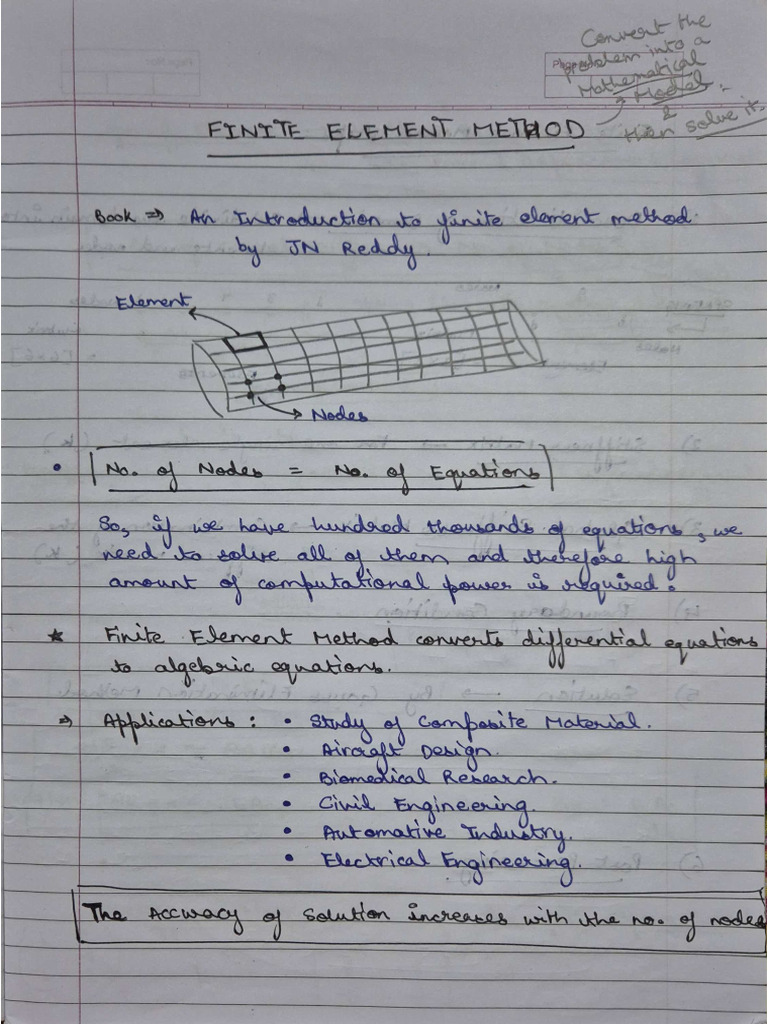 Convert the
problem into a
Mathematical
Model.
&
then solve it.
FINITE ELEMENT METHOD
Book ⇒ An Introduction to finite element method
by JN Reddy.
Element
Nodes
• No. of Nodes = No. of Equations
So, if we have hundred thousands of equations, we
need to solve all of them and therefore high
amount of computational power is required.
★ Finite Element Method converts differential equations
to algebric equations.
⇒ Applications : • Study of Composite Material.
• Aircraft Design.
• Biomedical Research.
• Civil Engineering.
• Automative Industry.
• Electrical Engineering.
The Accuracy of Solution increases with the no. of nodes